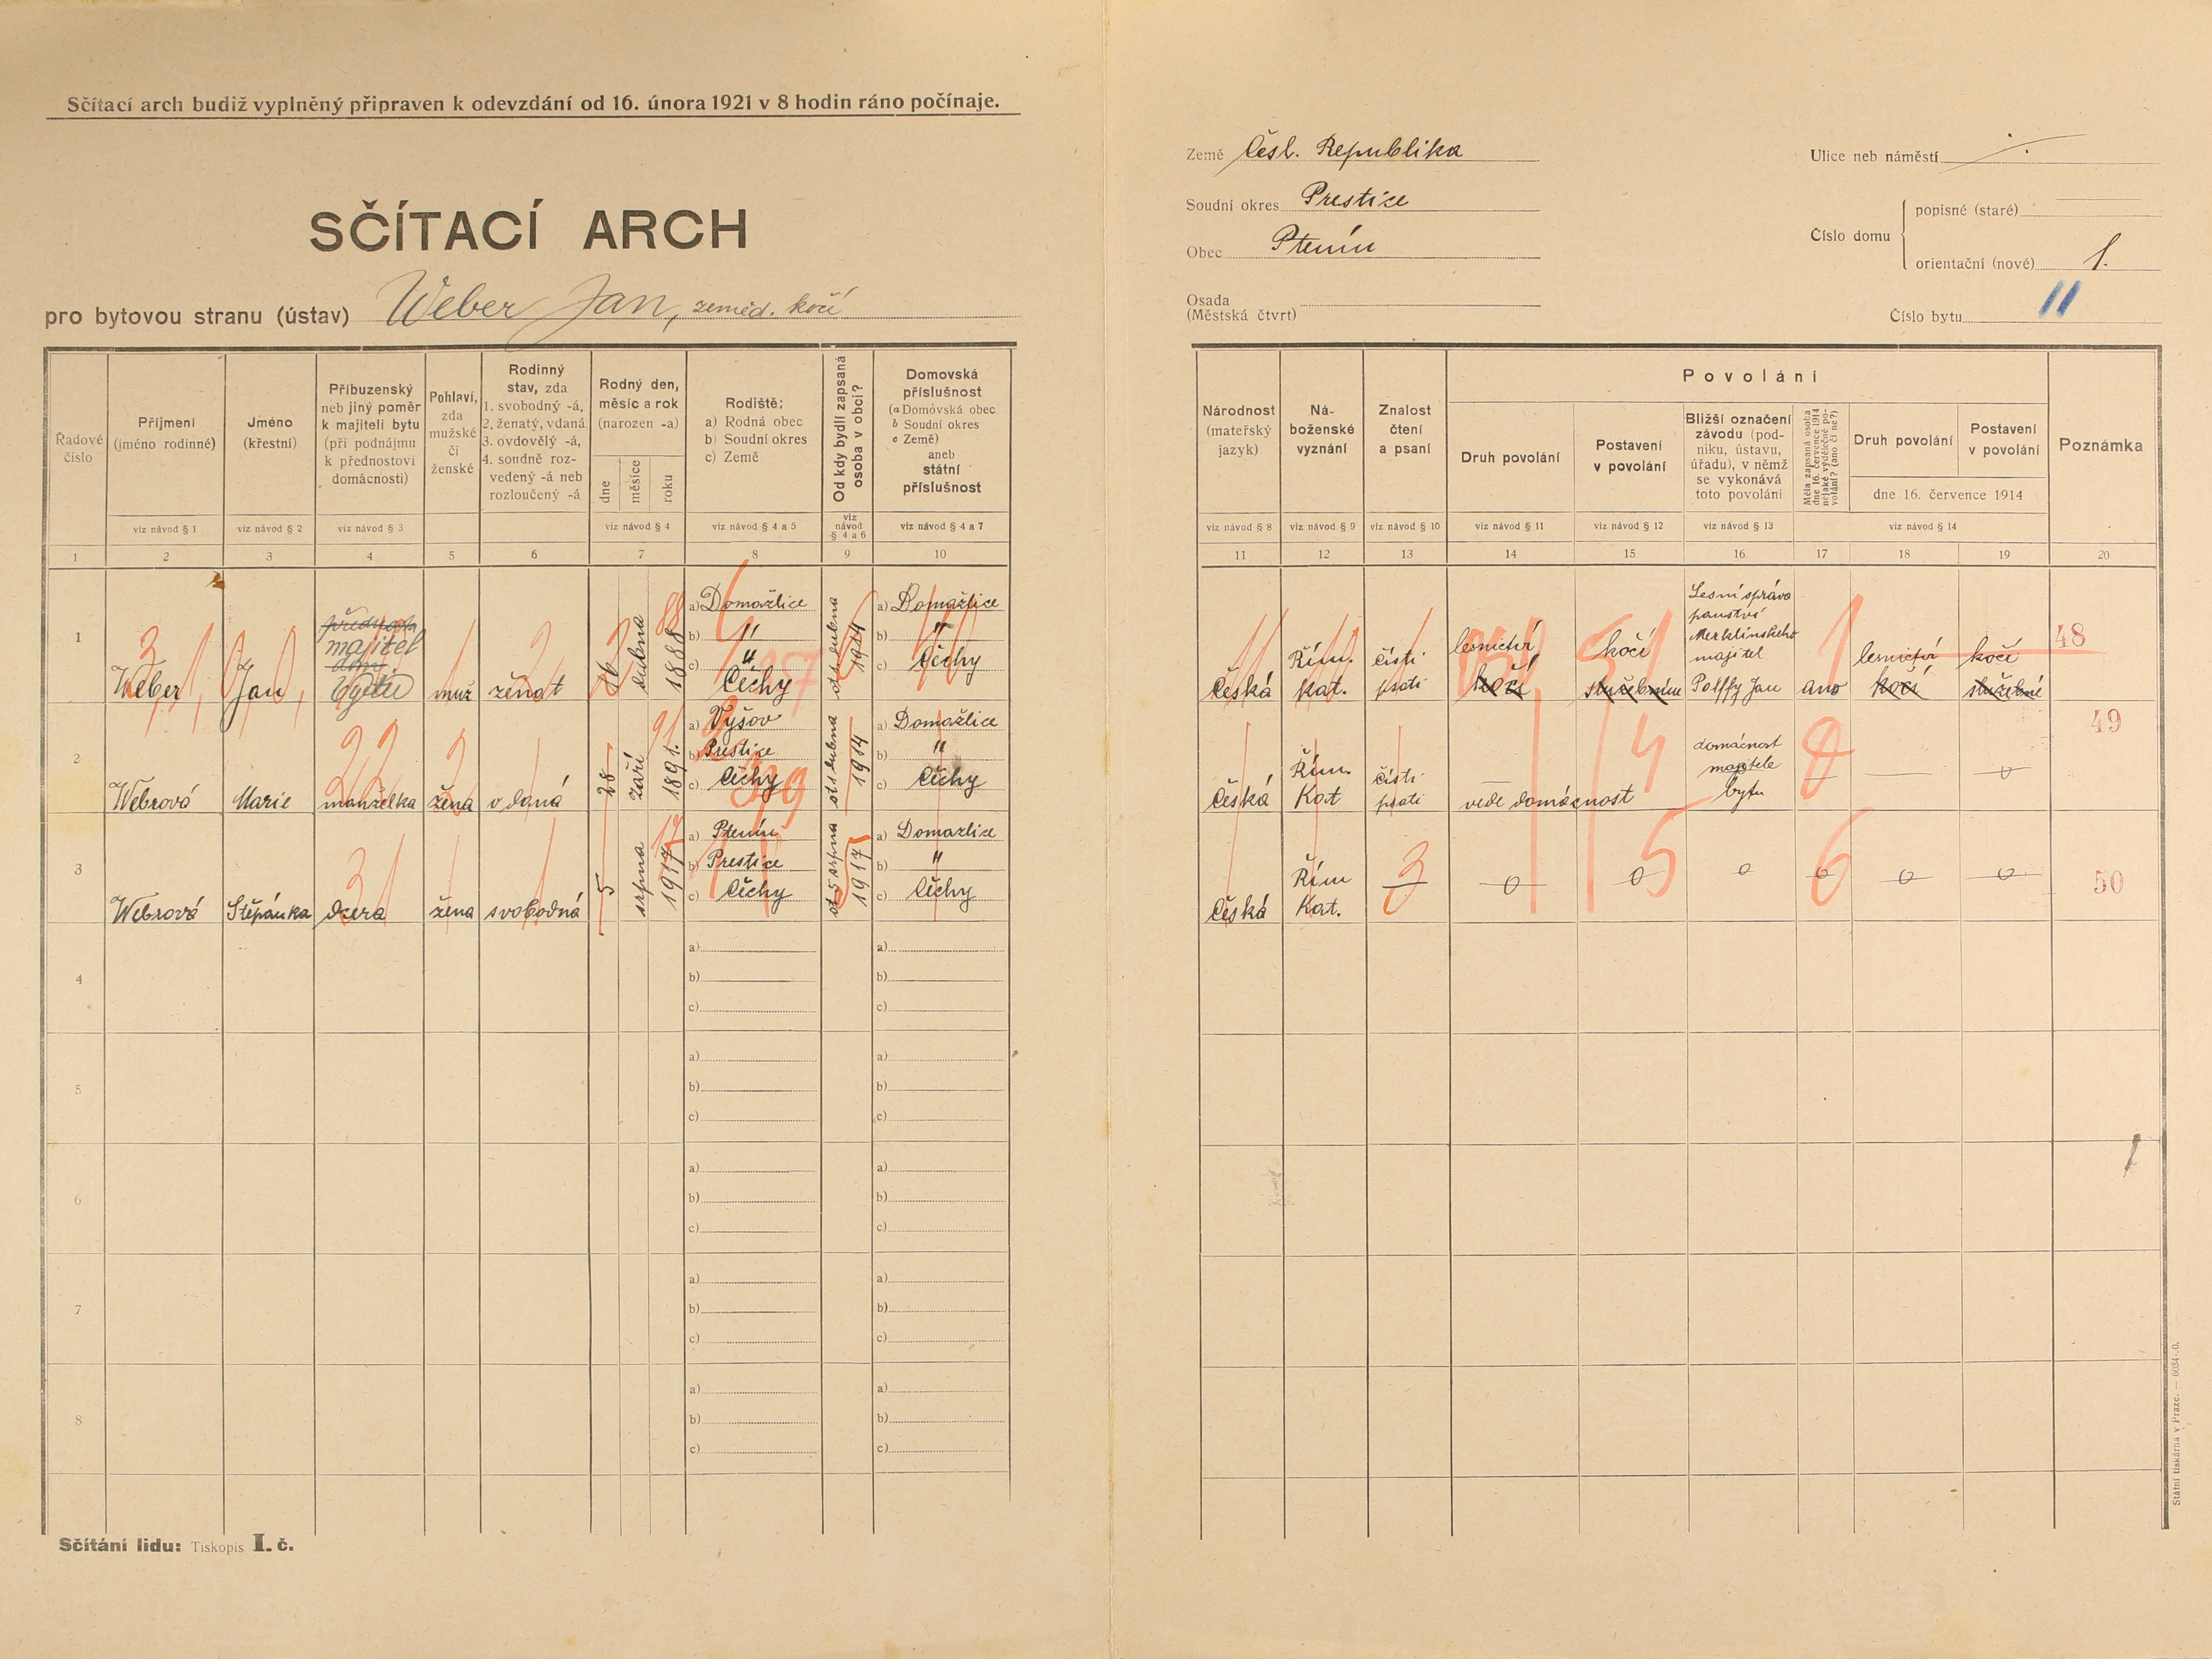 Sčítací arch budiž vyplněný připraven k odevzdání od 16. února 1921 v 8 hodin ráno počínaje.
SČÍTACÍ ARCH
pro bytovou stranu (ústav) Weber Jan, zeměd. kočí
Země Česl. Republika
Soudní okres Prestice
Obec Ptenín
Osada
(Městská čtvrt)
Ulice neb náměstí
Číslo domu
popisné (staré)
orientační (nové) 1.
Číslo bytu 11
Řadové číslo
Příjmení (jméno rodinné)
Jméno (křestní)
Příbuzenský neb jiný poměr k majiteli bytu (při podnájmu k přednostovi domácnosti)
Pohlaví, zda mužské či ženské
Rodinný stav, zda 1. svobodný -á, 2. ženatý, vdaná 3. ovdovělý -á, 4. soudně rozvedený -á neb rozloučený -á
Rodný den, měsíc a rok (narozen -a)
dne
měsíce
roku
Rodiště:
a) Rodná obec
b) Soudní okres
c) Země
Od kdy bydlí zapsaná osoba v obci?
Domovská příslušnost
(a Domovská obec
b Soudní okres
c Země)
aneb
státní příslušnost
viz návod § 1
viz návod § 2
viz návod § 3
viz návod § 4
viz návod § 4 a 5
viz návod § 4 a 6
viz návod § 4 a 7
1 2 3 4 5 6 7 8 9 10
Národnost (mateřský jazyk)
Náboženské vyznání
Znalost čtení a psaní
Povolání
Druh povolání
Postavení v povolání
Bližší označení závodu (podniku, ústavu, úřadu), v němž se vykonává toto povolání
Měla zapsaná osoba dne 16. července 1914 nějaké výdělečné povolání? (ano či ne?)
Druh povolání
Postavení v povolání
dne 16. července 1914
Poznámka
viz návod § 8
viz návod § 9
viz návod § 10
viz návod § 11
viz návod § 12
viz návod § 13
viz návod § 14
11 12 13 14 15 16 17 18 19 20
1
Weber
Jan
majitel
bytu
muž
ženat
16
dubna
1888
a) Domažlice
b) "
c) "
Čechy
1914
a) Domažlice
b) "
c) Čechy
Česká
Řím.
kat.
čísti
psáti
lesnictví
kočí
kočí
služebním
Lesní správa
panství
Merklínského
majitel
Palffy Jan
ano
lesnictví
kočí
kočí
služebné
48
2
Webrová
Marie
manželka
žena
vdaná
28
září
1891.
a) Vyšov
b) Prestice
c) Čechy
od 1 dubna
1914
a) Domažlice
b) "
c) Čechy
Česká
Řím.
Kat
čísti
psáti
vede domácnost
domácnost
majitele
bytu
49
3
Webrová
Štěpánka
dcera
žena
svobodná
5
srpna
1917
a) Ptenín
b) Prestice
c) Čechy
od 5 srpna
1917
a) Domažlice
b) "
c) Čechy
Česká
Řím
Kat.
50
4
a)
b)
c)
a)
b)
c)
5
a)
b)
c)
a)
b)
c)
6
a)
b)
c)
a)
b)
c)
7
a)
b)
c)
a)
b)
c)
8
a)
b)
c)
a)
b)
c)
Sčítání lidu: Tiskopis I. č.
Státní tiskárna v Praze. — 6034-0.